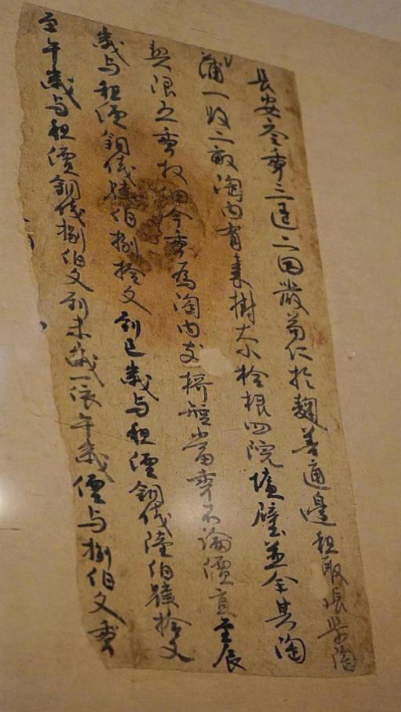 長安參年三月二日嚴苟仁於麹善通邊租取張渠陶
蒲一段二畝陶內有棗樹大小拾根四院墻壁並全其陶
契限五年收佃今年為陶內支搭墼當年不論價直至辰
歲与租價銅伐肆伯捌拾文到巳歲与租價銅伐陸伯肆拾文
至午歲与租價銅伐捌伯文到未歲一依午歲價与捌伯文年